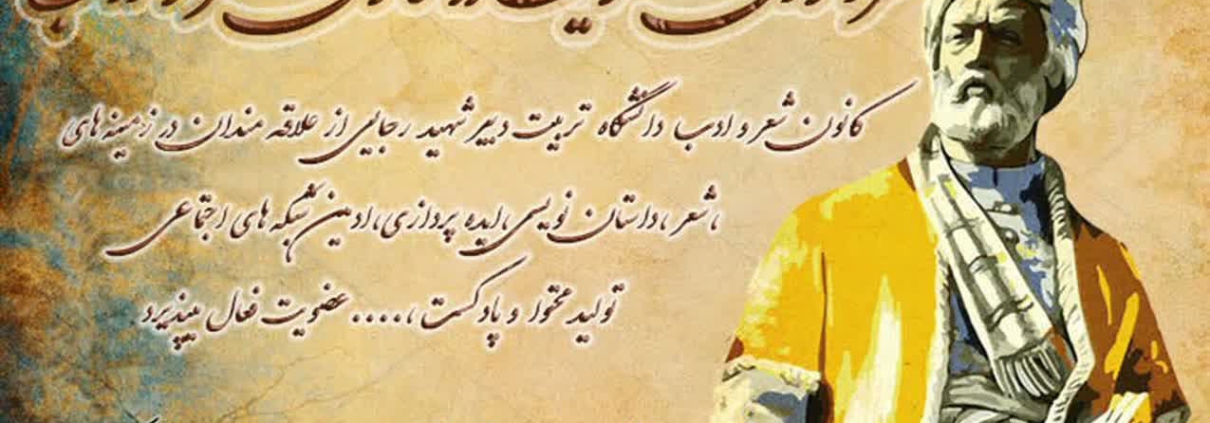 کانون شعر و ادب دانشگاه تربیت دبیر شهید رجایی از علاقه مندان در زمینه های
،شعر ،داستان نویسی ،ایده پردازی ،ادمین شبکه های اجتماعی
تولید محتوا و پادکست ،.... عضویت فعال میپذیرد